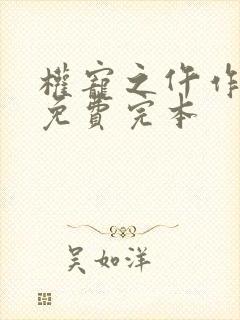 權寵之仵作
免費完本
吳如洋